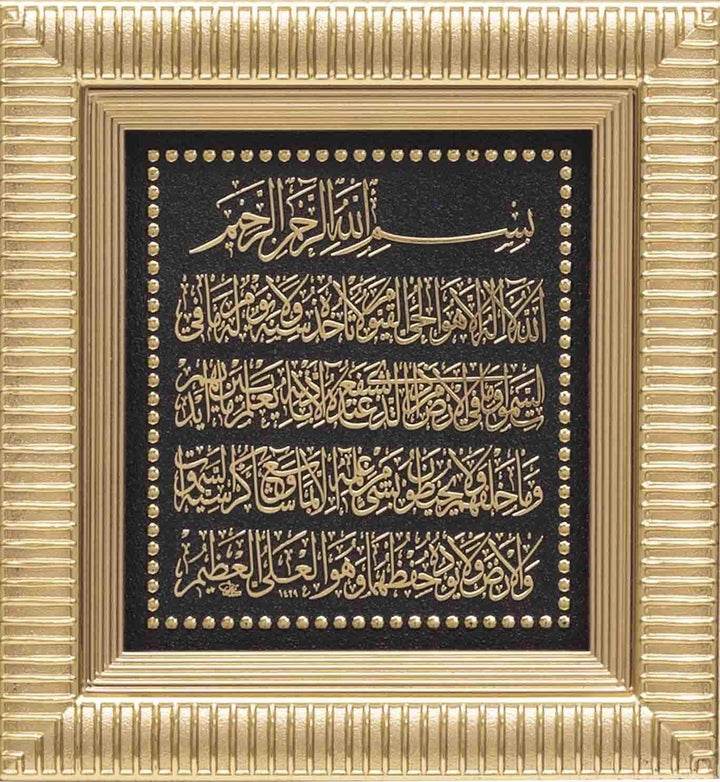 بسم الله الرحمن الرحيم
الله لا إله إلا هو الحي القيوم لا تأخذه سنة ولا نوم له ما في
السموات وما في الأرض من ذا الذي يشفع عنده إلا بإذنه يعلم ما بين أيديهم
وما خلفهم ولا يحيطون بشيء من علمه إلا بما شاء وسع كرسيه السموات
والأرض ولا يؤده حفظهما وهو العلي العظيم
١٤٢٩